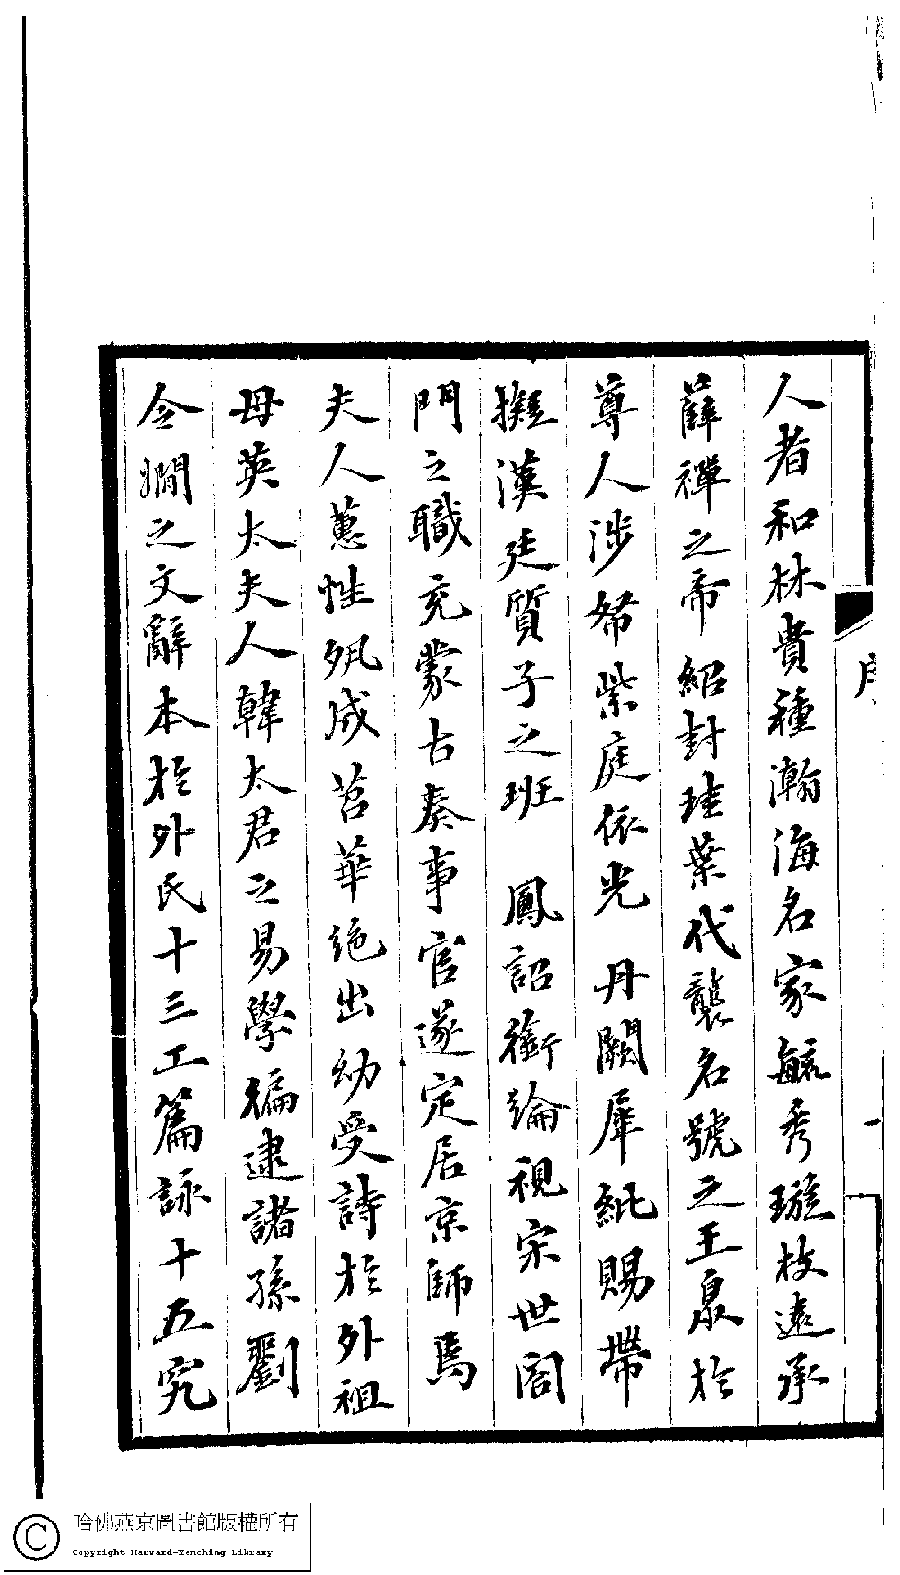 人者和林貴種瀚海名家毓秀璇枝遠承
薛禪之帝紹封珪葉代襲名號之王泉於
尊人涉希紫庭依光　丹闕犀紕賜帶
擬漢廷質子之班　鳳詔銜論視宗世閤
門之職充蒙古奏事官遂定居京師焉
夫人蕙性夙成苕華絶出幼受詩於外祖
母英太夫人韓太君之易學徧逮諸孫劉
令嫺之文辭本於外氏十三工篇詠十五究
序
一
哈佛燕京圖書館版權所有
Copyright Harvard-Yenching Library